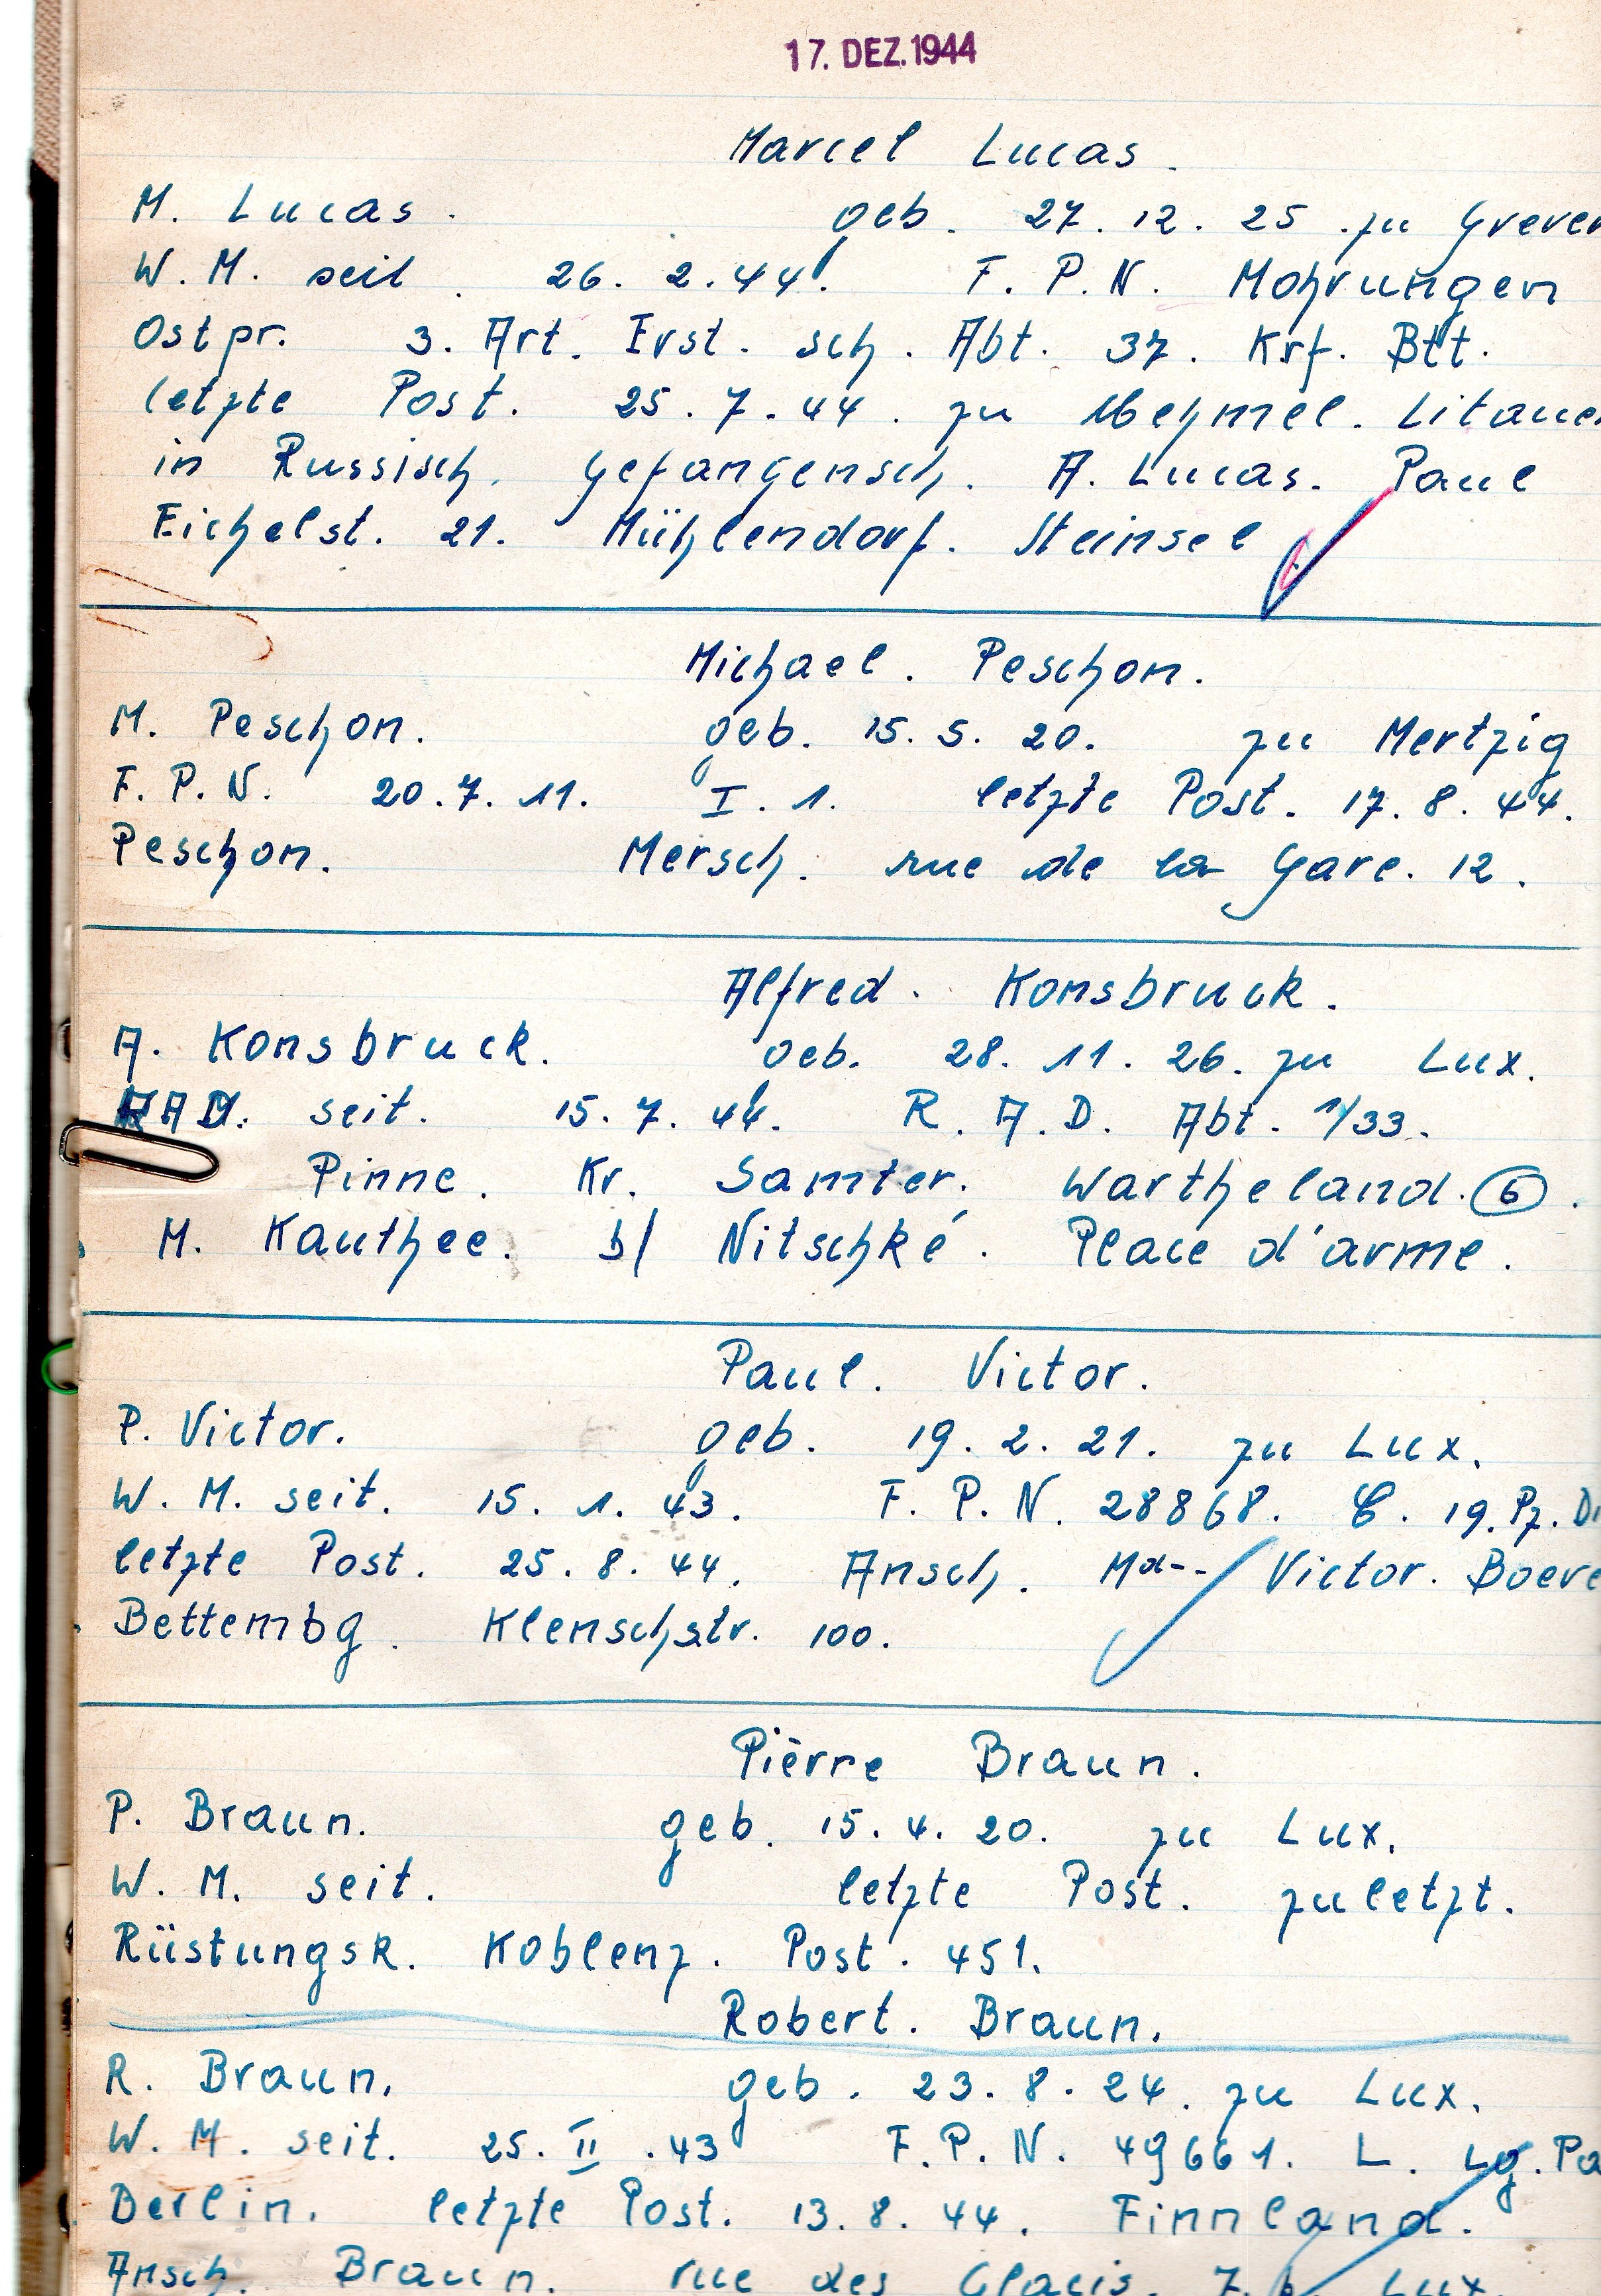 17. DEZ. 1944
Marcel Lucas.
M. Lucas. geb. 27. 12. 25 zu Greven
W. M. seit. 26. 2. 44. F. P. N. Mohrungen
Ostpr. 3. Art. Erst. sch. Abt. 37. Krf. Btt.
letzte Post. 25. 7. 44. zu Litauen
in Russisch. Gefangensch. A. Lucas. Paul
Eichelst. 21. Mühlendorf. Steinsel
Michael. Peschon.
M. Peschon. geb. 15. 5. 20. zu Mertzig
F. P. N. 20. 7. 11. I. 1. letzte Post. 17. 8. 44.
Peschon. Mersch. rue de la Gare. 12.
Alfred. Konsbruck.
A. Konsbruck. geb. 28. 11. 26. zu Lux.
RAD. seit. 15. 7. 44. R. A. D. Abt. 1/33.
Pinne. Kr. Samter. Wartheland. 6.
M. Kauthee. b/ Nitschké. Place d'arme.
Paul. Victor.
P. Victor. geb. 19. 2. 21. zu Lux.
W. M. seit. 15. 1. 43. F. P. N. 28868. C. 19. Pz. Di
letzte Post. 25. 8. 44. Ansch. Md-- Victor. Boeve
Bettembg. Klenschstr. 100.
Pièrre Braun.
P. Braun. geb. 15. 4. 20. zu Lux.
W. M. seit. letzte Post. zuletzt.
Rüstungsk. Koblenz. Post. 451.
Robert. Braun.
R. Braun. geb. 23. 8. 24. zu Lux.
W. M. seit. 25. II. 43 F. P. N. 49661. L. Lg. Pa
Berlin. letzte Post. 13. 8. 44. Finnland.
Ansch. Braun. rue des Glacis. 7. Lux.